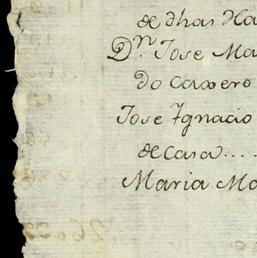 de dhas Ha
Dn. Jose Ma
do Caxero
Jose Ignacio
de casa....
Maria Ma